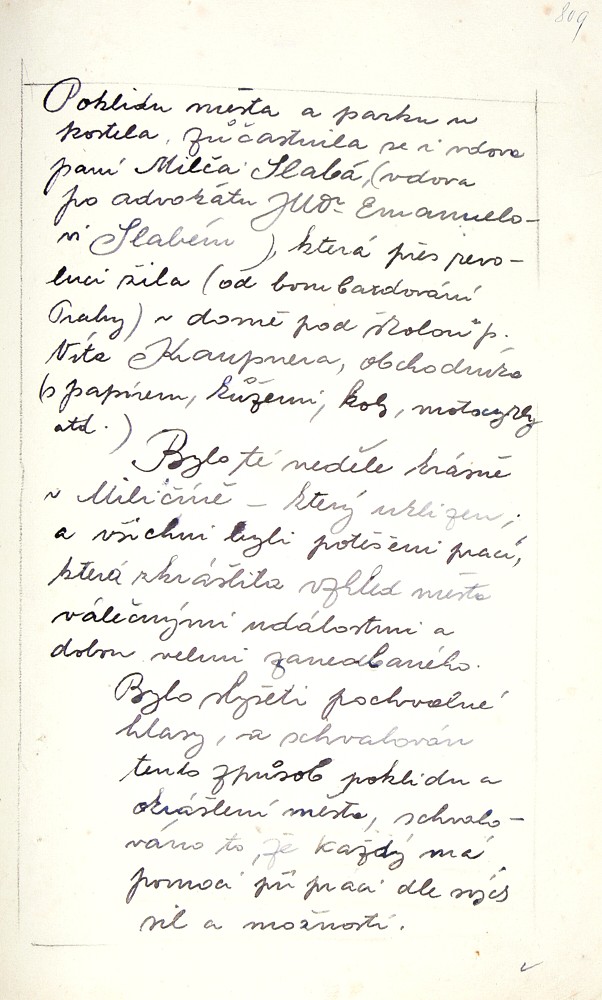 809
Poklidu města a parku u
kostela, zúčastnila se i vdova
paní Milča Slabá, (vdova
po advokátu JUDr. Emanuelo-
vi Slabém), která přes revo-
luci žila (od bombardování
Prahy) v domě pod školou p.
Víta Kraupnera, obchodníka
(s papírem, kůžemi, koly, motocykly
atd.)
Bylo té neděle krásně
v Miličíně – který uklizen;
a všichni byli potěšeni prací,
která zkrášlila vzhled města
válečnými událostmi a
dobou velmi zanedbaného.
Bylo slyšeti pochvalné
hlasy, a schvalován
tento způsob poklidu a
okrášlení města, schvalo-
váno to, že každý má
pomoci při práci dle svých
sil a možností.